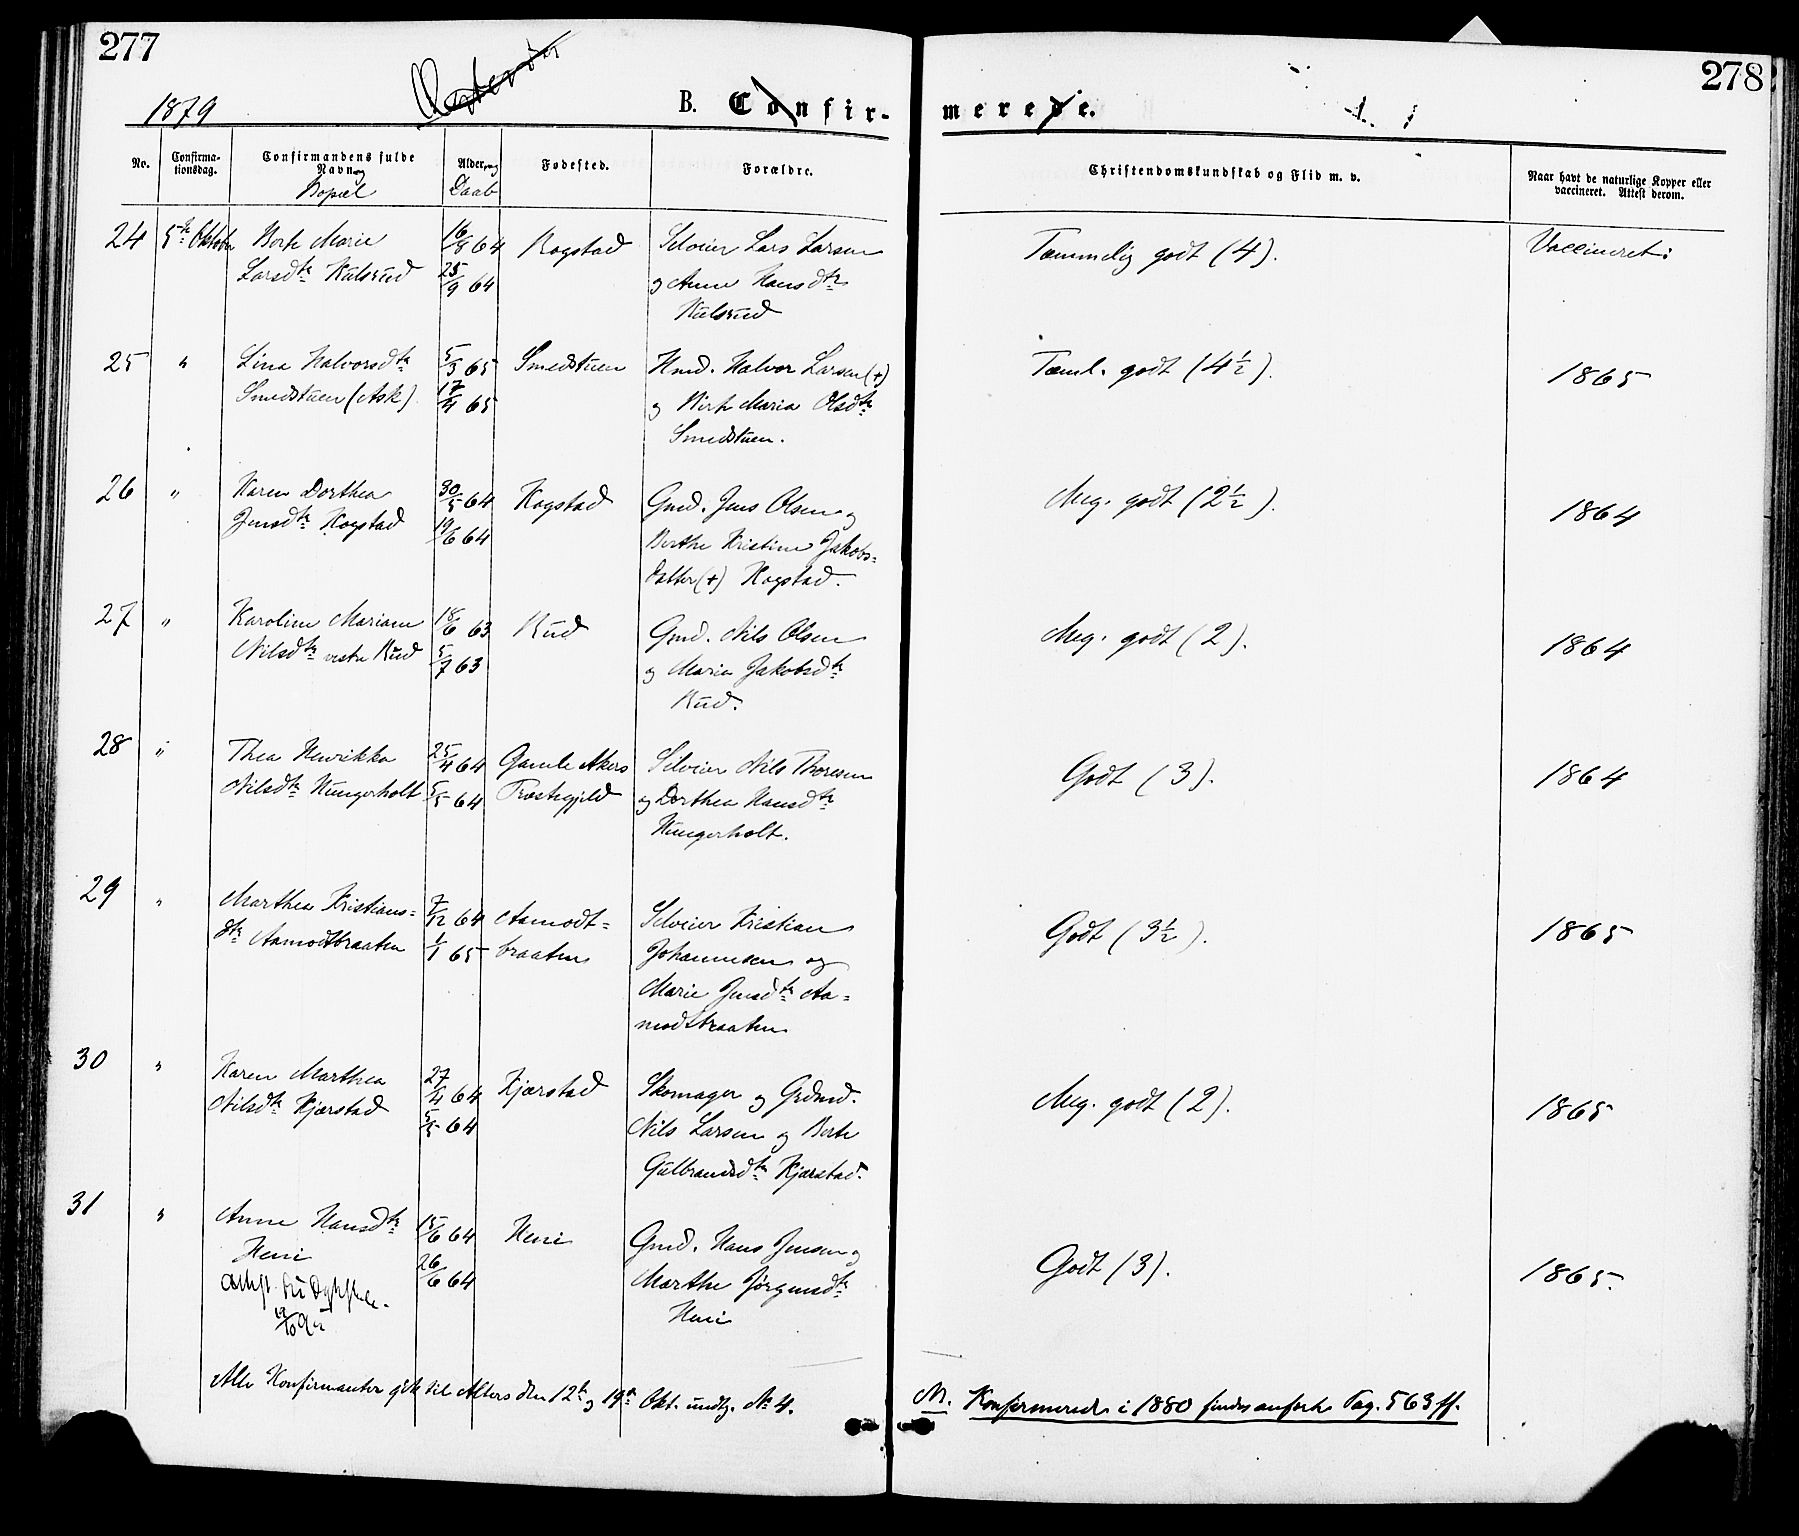 277
278
1879
B. Confir-
merede.
No.
Confirma-
tionsdag.
Confirmandens fulde
Navn og
Bopæl
Alder og
Daab
Fødested.
Forældre.
Christendomskundskab og Flid m. v.
Naar havt de naturlige Kopper eller
vaccineret. Attest derom.
24 5te Oktober Berte Marie 16/8 64 Rogstad Selveier Lars Larsen Temmelig godt (4). Vaccineret:
Larsdtr Kulsrud 25/9 64 og Anne Hansdtr
Kulsrud
25 " Lina Halvorsdtr 5/3 65 Smedstuen Hmd. Halvor Larsen (+) Teml. godt (4½). 1865
Smedstuen (Ask) 17/4 65 og Birte Maria Olsdtr
Smedstuen.
26 " Karen Dorthea 30/5 64 Kogstad Gmd. Jens Olsen og Meg. godt (2½). 1864
Jensdtr Kogstad 19/6 64 Berthe Kristine Jakobs=
datter (+) Kogstad.
27 " Karoline Mariane 18/6 63 Rud Gmd. Nils Olsen Meg. godt (2). 1864
Nilsdtr vestre Rud 5/7 63 og Maria Jakobsdtr
Rud.
28 " Thea Henrikka 25/4 64 Gamle Akers Selveier Nils Thoresen Godt (3). 1864
Nilsdtr Hungerholt 5/5 64 Præstegjeld og Dorthea Hansdtr
Hungerholt.
29 " Marthea Kristians= 7/12 64 Aamodt= Selveier Kristian Godt (3½). 1865
dtr Aamodtbraaten 1/1 65 braaten Johannesen og
Marie Jensdtr Aa=
modtbraaten
30 " Karen Marthea 27/4 64 Kjærstad Skomager og Grdmd. Meg. godt (2). 1865
Nilsdtr Kjærstad 5/5 64 Nils Larsen og Berte
Gulbrandsdtr Kjærstad.
31 " Anne Hansdtr 15/6 64 Heni Gmd. Hans Jensen og Godt (3). 1865
Heni 26/6 64 Marthe Jørgensdtr
Heni
Alle Konfirmanter gik til Alters den 12te og 19de Okt. undtg. No 4.
NB. Konfirmerede i 1880 findes anførte Pag. 563 ff.